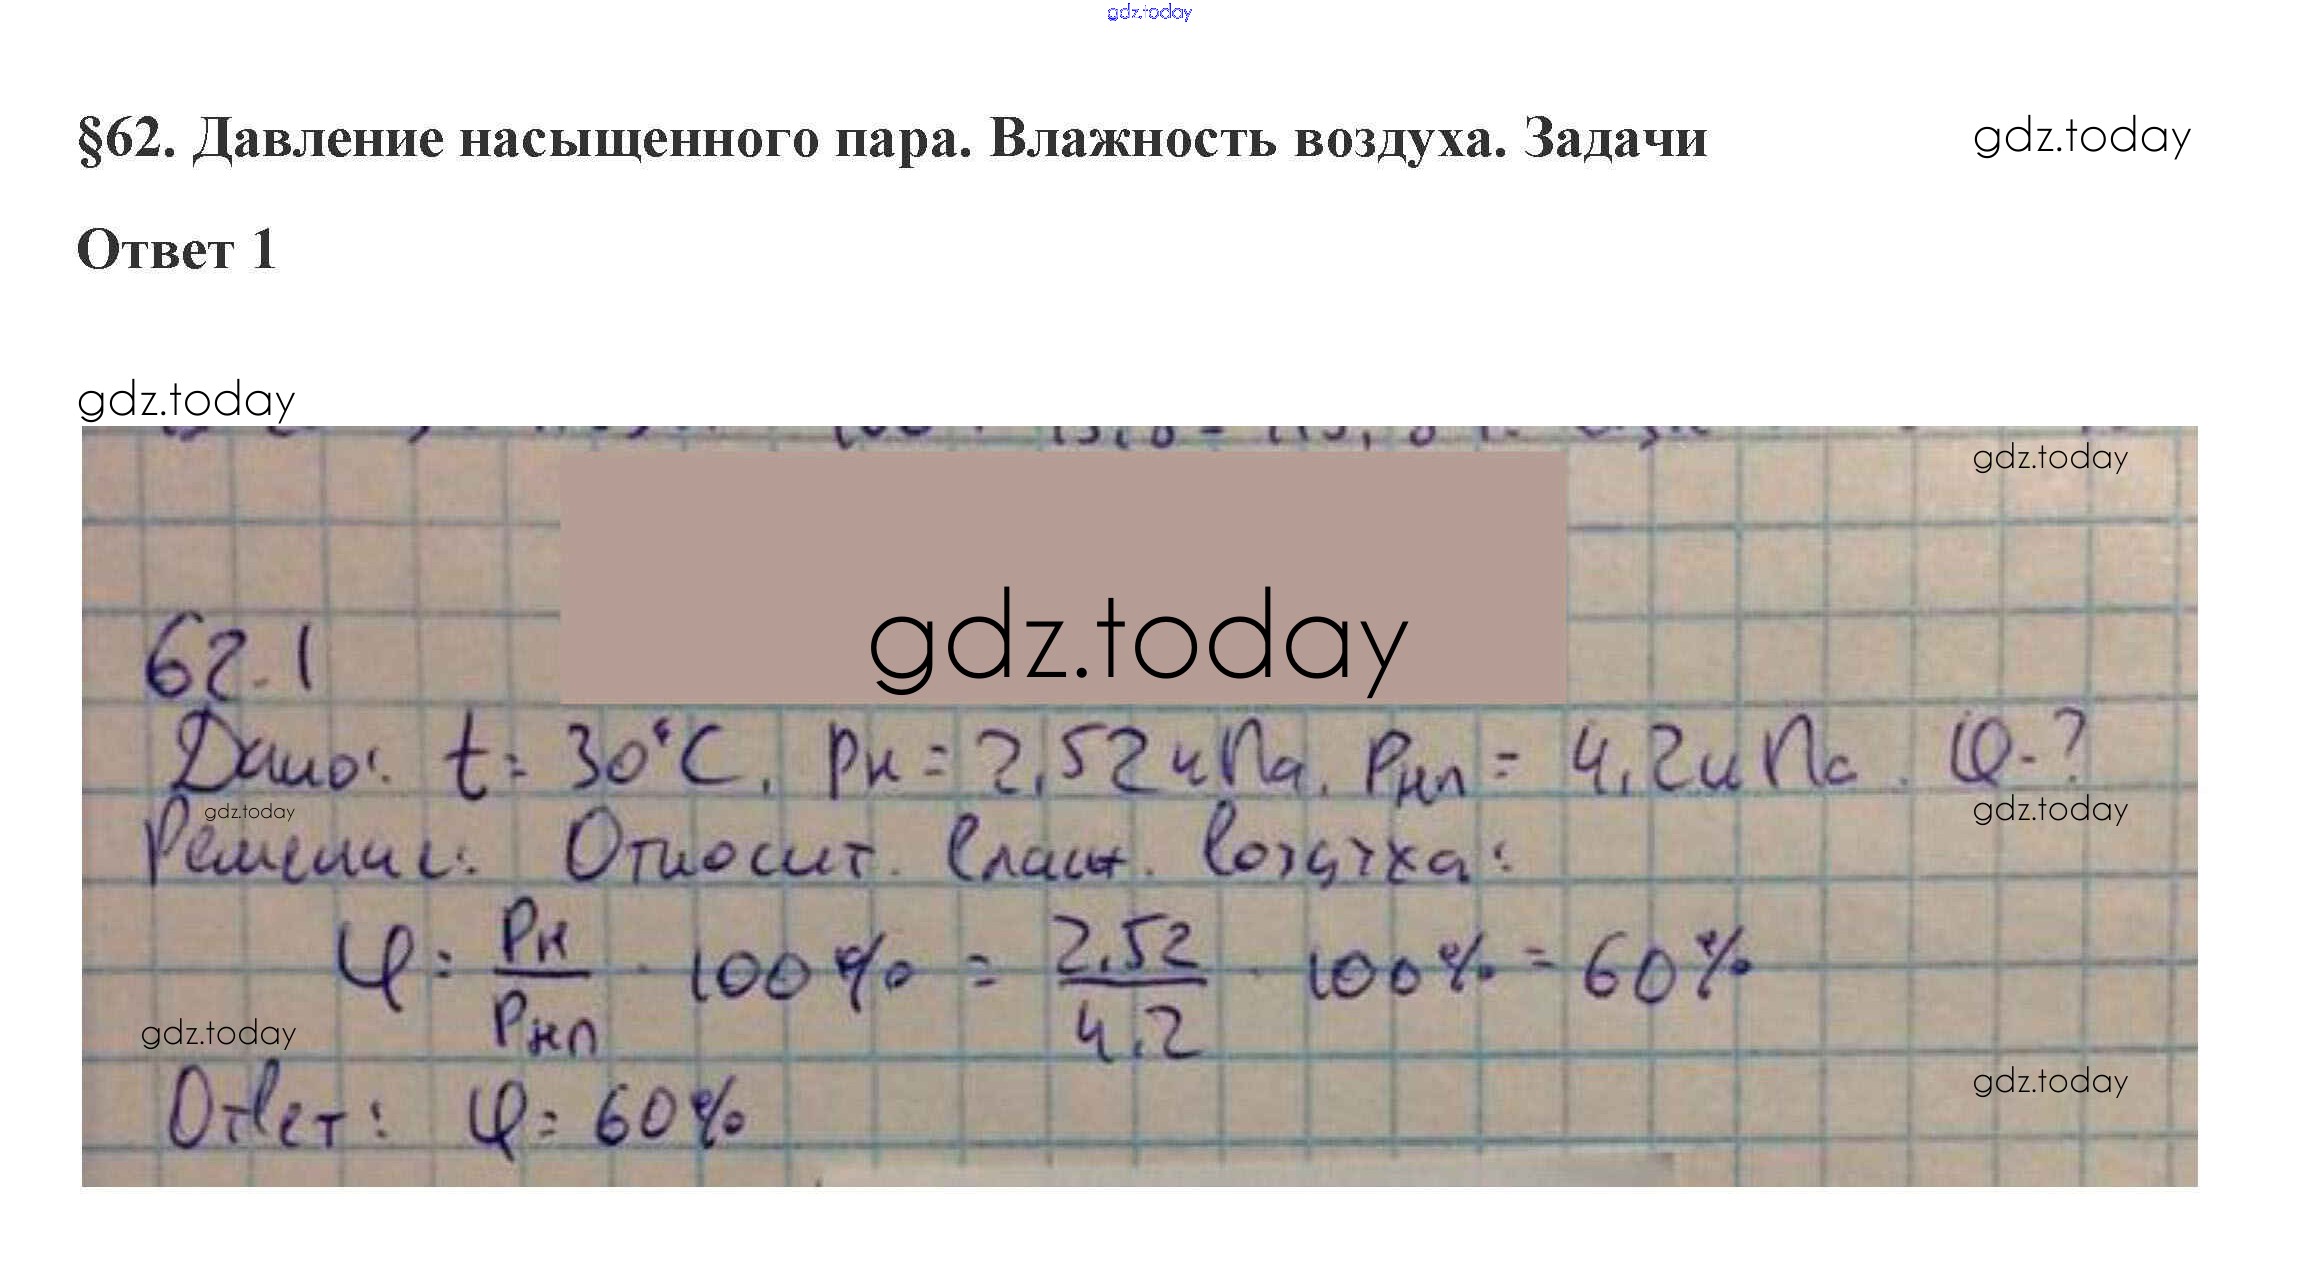 gdz.today
§62. Давление насыщенного пара. Влажность воздуха. Задачи
gdz.today
Ответ 1
gdz.today
gdz.today
gdz.today
62.1
Дано: t = 30°C, pн = 2,52 кПа, pнп = 4,2 кПа. φ-?
gdz.today
gdz.today
Решение: Относит. влаж. воздуха:
φ = pн / pнп · 100% = 2,52 / 4,2 · 100% = 60%
gdz.today
gdz.today
Ответ: φ = 60%